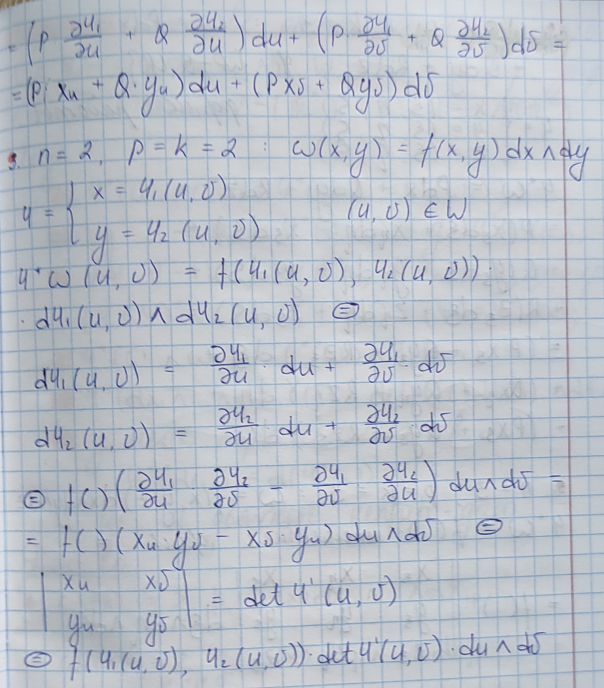 = (P ∂φ₁/∂u + Q ∂φ₂/∂u) du + (P ∂φ₁/∂υ + Q ∂φ₂/∂υ) dυ =
= (P · xu + Q · yu) du + (P xυ + Q yυ) dυ
3. n = 2, p = k = 2 : ω(x, y) = f(x, y) dx ∧ dy
φ = { x = φ₁(u, υ)
y = φ₂(u, υ) (u, υ) ∈ W
φ*ω(u, υ) = f(φ₁(u, υ), φ₂(u, υ)) ·
· dφ₁(u, υ) ∧ dφ₂(u, υ) ⊜
dφ₁(u, υ) = ∂φ₁/∂u · du + ∂φ₁/∂υ · dυ
dφ₂(u, υ) = ∂φ₂/∂u · du + ∂φ₂/∂υ · dυ
⊜ f( ) (∂φ₁/∂u ∂φ₂/∂υ − ∂φ₁/∂υ ∂φ₂/∂u) du ∧ dυ =
= f( ) (xu · yυ − xυ · yu) du ∧ dυ ⊜
| xu xυ |
| yu yυ | = det φ'(u, υ)
⊜ f(φ₁(u, υ), φ₂(u, υ)) · det φ'(u, υ) · du ∧ dυ